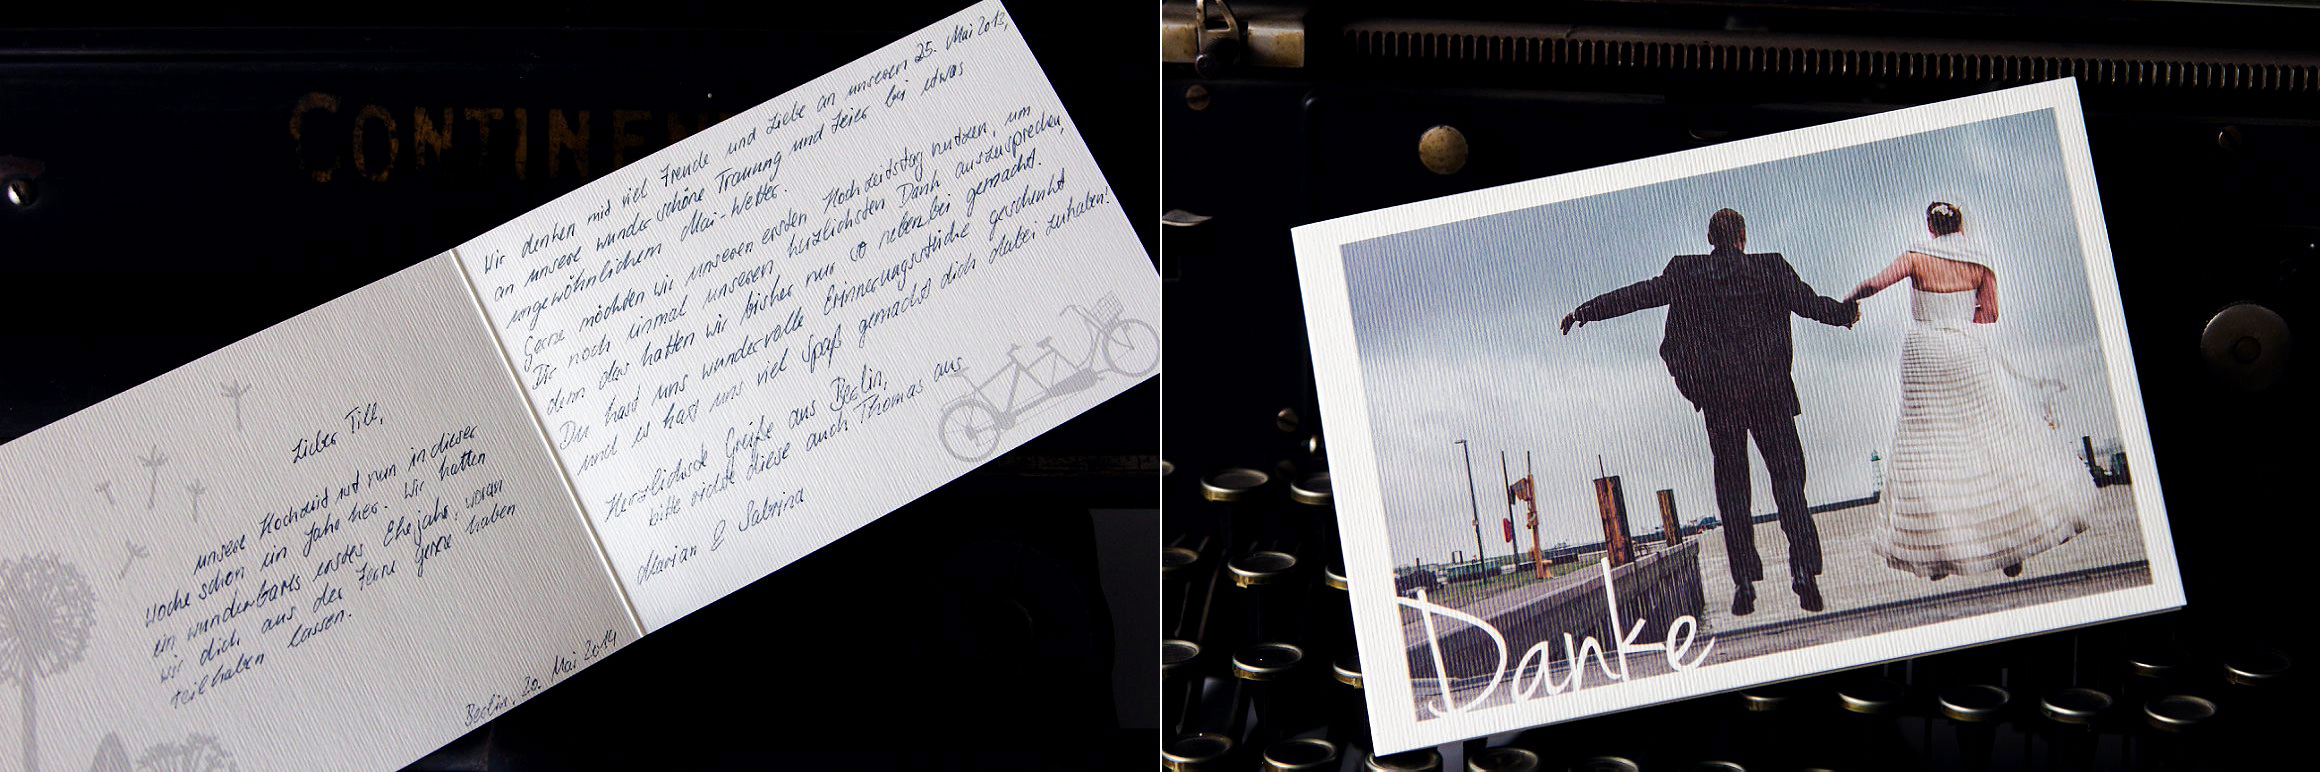 CONTINE
Lieber Till,
unsere Hochzeit ist nun in dieser
Woche schon ein Jahr her. Wir hatten
ein wunderbares erstes Ehejahr, woran
wir dich aus der Ferne gerne haben
teilhaben lassen.
Berlin, 20. Mai 2014
Wir denken mit viel Freude und Liebe an unseren 25. Mai 2013,
an unsere wunderschöne Trauung und Feier bei etwas
ungewöhnlichem Mai-Wetter.
Gerne möchten wir unseren ersten Hochzeitstag nutzen, um
Dir noch einmal unseren herzlichsten Dank auszusprechen,
denn das hatten wir bisher nur so nebenbei gemacht.
Du hast uns wundervolle Erinnerungsstücke geschenkt
und es hat uns viel Spaß gemacht dich dabei zuhaben!
Herzlichste Grüße aus Berlin,
bitte richte diese auch Thomas aus
Marian & Sabrina
Danke